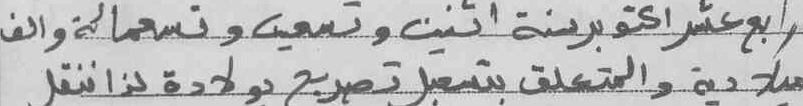 رابع عشر اكتوبر سنة اثنين و تسعين و تسعمائة والف
ميلادية والمتعلق بتسجيل تصريح بولادة لذا ننقل